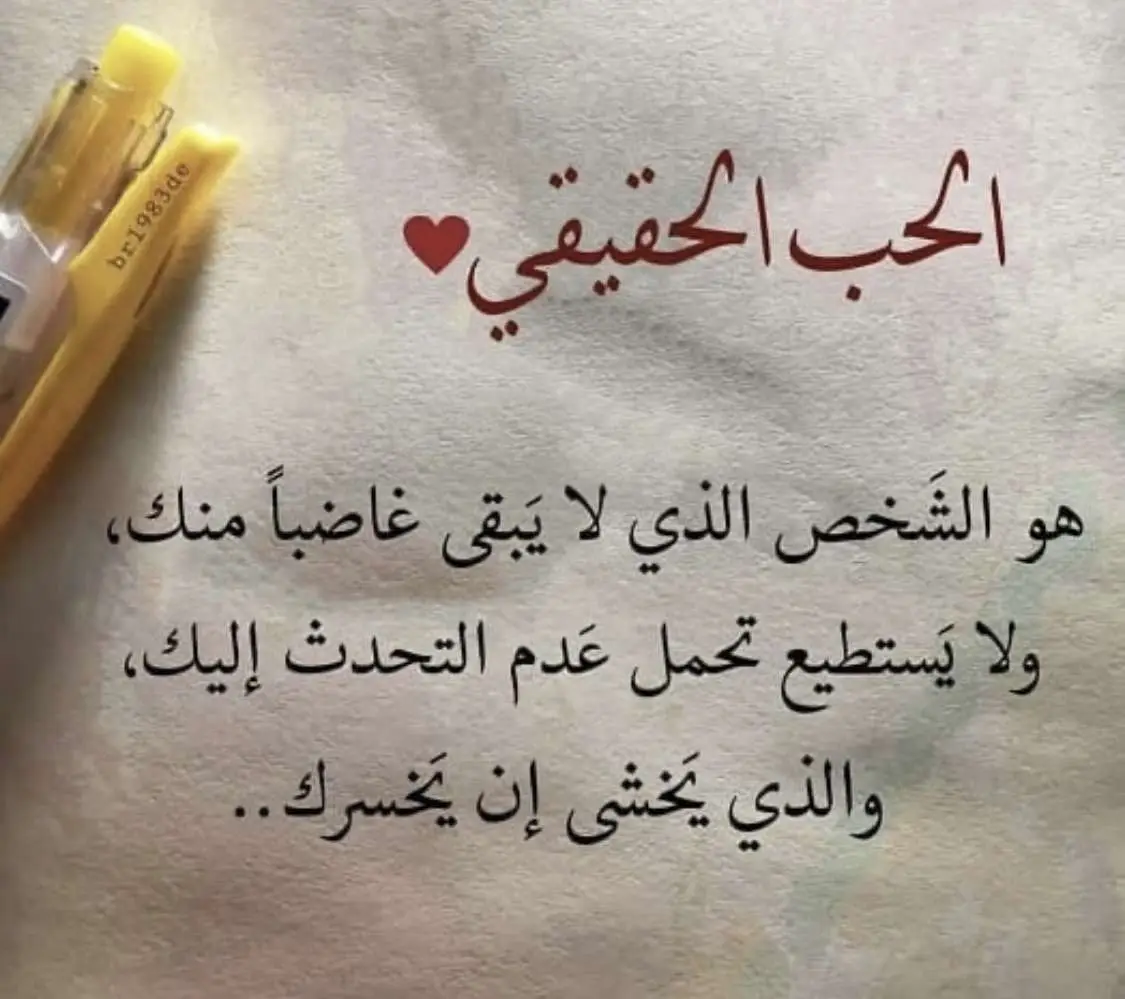 الحب الحقيقي♥
هو الشَخص الذي لا يَبقى غاضباً منك،
ولا يَستطيع تحمل عَدم التحدث إليك،
والذي يَخشى إن يَخسرك..
br1983de